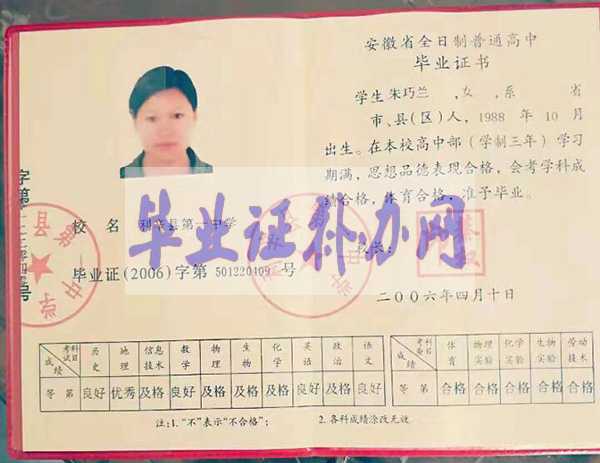 安徽省全日制普通高中
毕业证书
学生 朱巧兰 ,女 ,系 省
市、县(区)人, 1988 年 10 月
出生。在本校高中部(学制三年)学习
期满,思想品德表现合格,会考学科成
绩合格,体育合格,准予毕业。
校 名 县第一中学
校长:
毕业证(2006)字第 501220109 号
二〇〇六年四月十日
毕业证补办网
考试科目 历史 地理 信息技术 数学 物理 生物 化学 英语 政治 语文
成绩 等第 良好 优秀 及格 良好 及格 及格 及格 良好 良好 良好
考查科目 体育 物理实验 化学实验 生物实验 劳动技术
成绩 等第 合格 合格 合格 合格 合格
注:1."不"表示"不合格"; 2.各科成绩涂改无效.